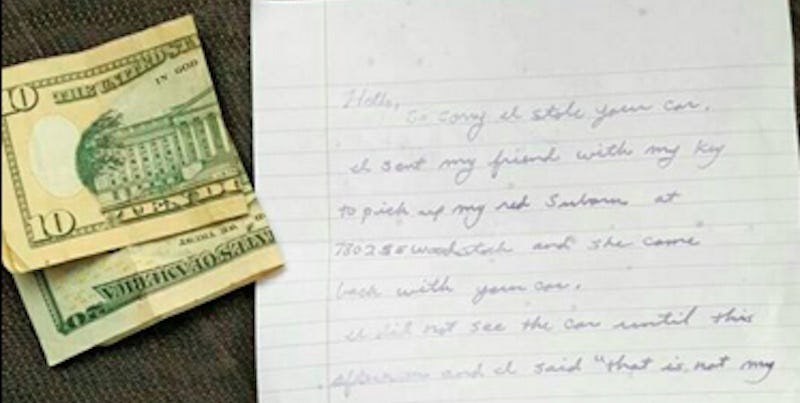 10
THE UNITED S
IN GOD
10
TEN DO
WE TRUST
TES OF AMERICA
Hello,
So sorry I stole your car.
I sent my friend with my key
to pick up my red Subaru at
7802 SE Woodstock and she came
back with your car.
I did not see the car until this
afternoon and I said "that is not my